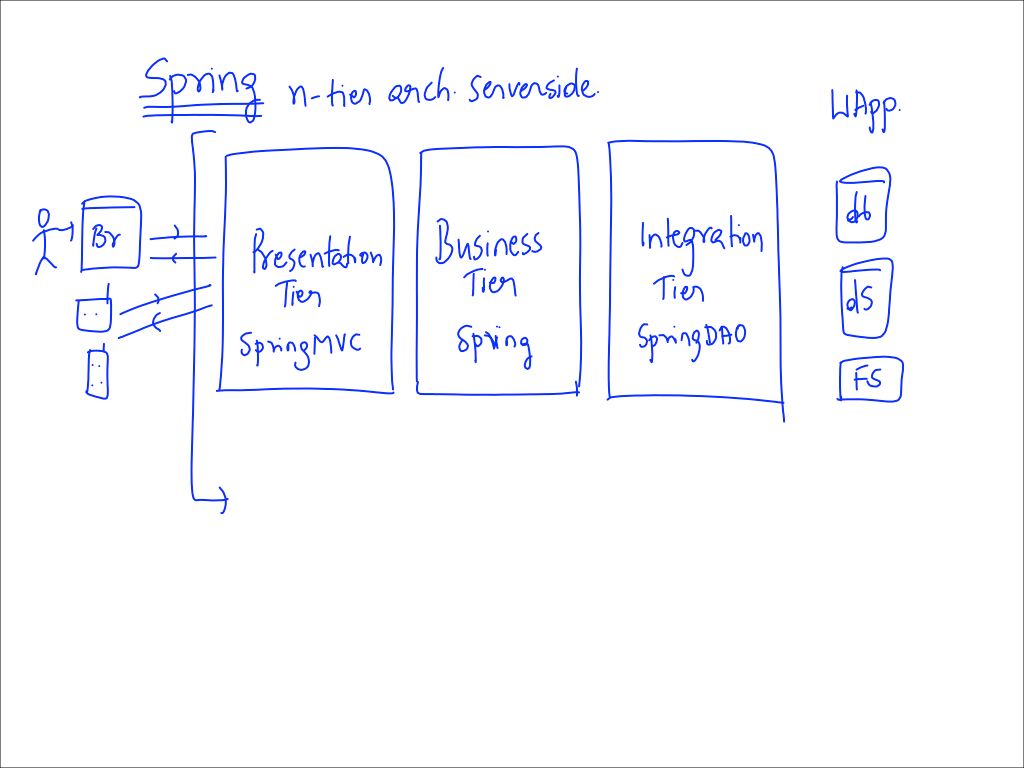 Spring n-tier arch. Serverside.
WApp.
Br
Presentation
Tier
SpringMVC
Business
Tier
Spring
Integration
Tier
SpringDAO
db
dS
FS